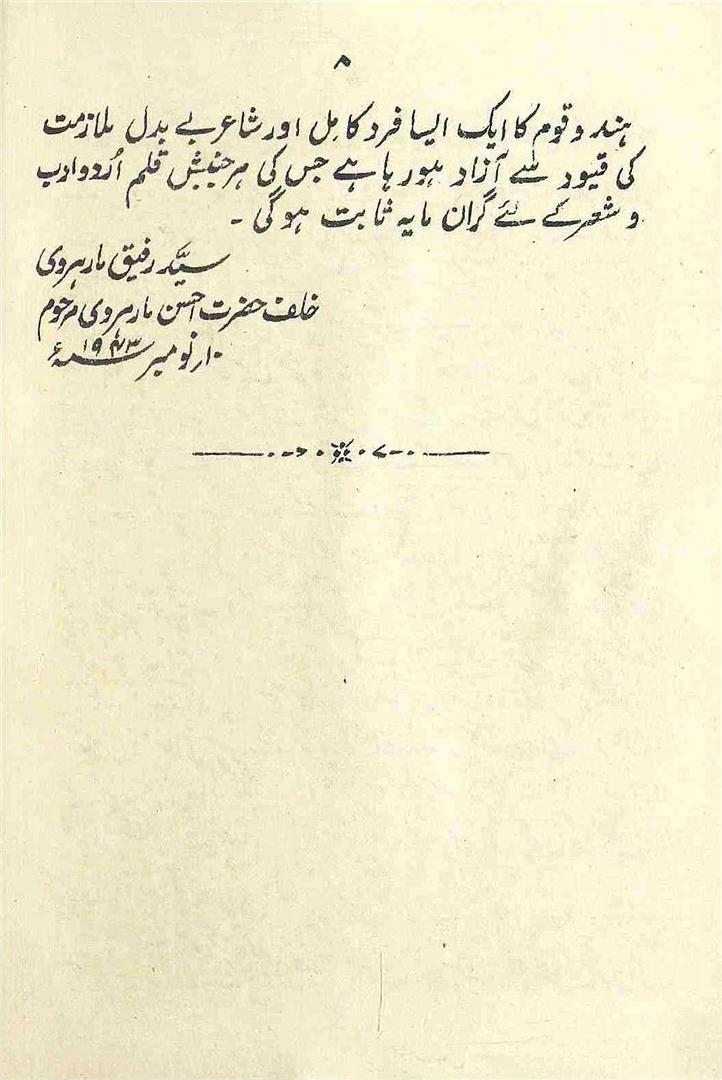 ۸
ہندو قوم کا ایک ایسا فرد کامل اور شاعر بے بدل ملازمت
کی قیود سے آزاد ہو رہا ہے جس کی ہر جنبش قلم اُردو ادب
و شعر کے لئے گران مایہ ثابت ہوگی ۔
سیّد رفیق مارہروی
خلف حضرت احسن مارہروی مرحوم
۱۰ر نومبر ۱۹۴۳ء